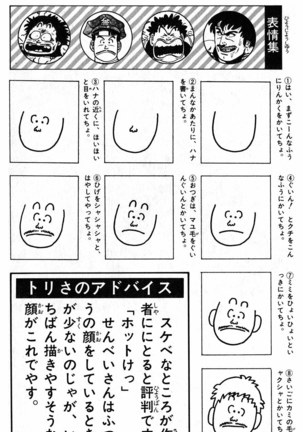 表情集
ひょうじょうしゅう
①はい、まずこーんなふう
にりんかくをかいてちょ。
②まんなかあたりに、ハナ
を書いてちょ。
③ハナの近くに、ほいほい
と目をいれてちょ。
④ぐいん!とクチをこん
なふうにかいてちょ。
⑤おつぎは、マユモをぐい
んぐいんとかいてちょ。
⑥ひげをシャシャシャと、
はやしてやってちょ。
⑦ミミをひょいひょいとい
っきにかいてちょ。
⑧さいごにカミのモ
ャクシャとかいてち
トリさのアドバイス
スケベなとこが
者にとると評判で
「ホットけっ」
せんべいさんはふつ
うの顔をしているとき
が少ないのじゃが、い
ちばん描きやすそうな
顔がこれでやす。